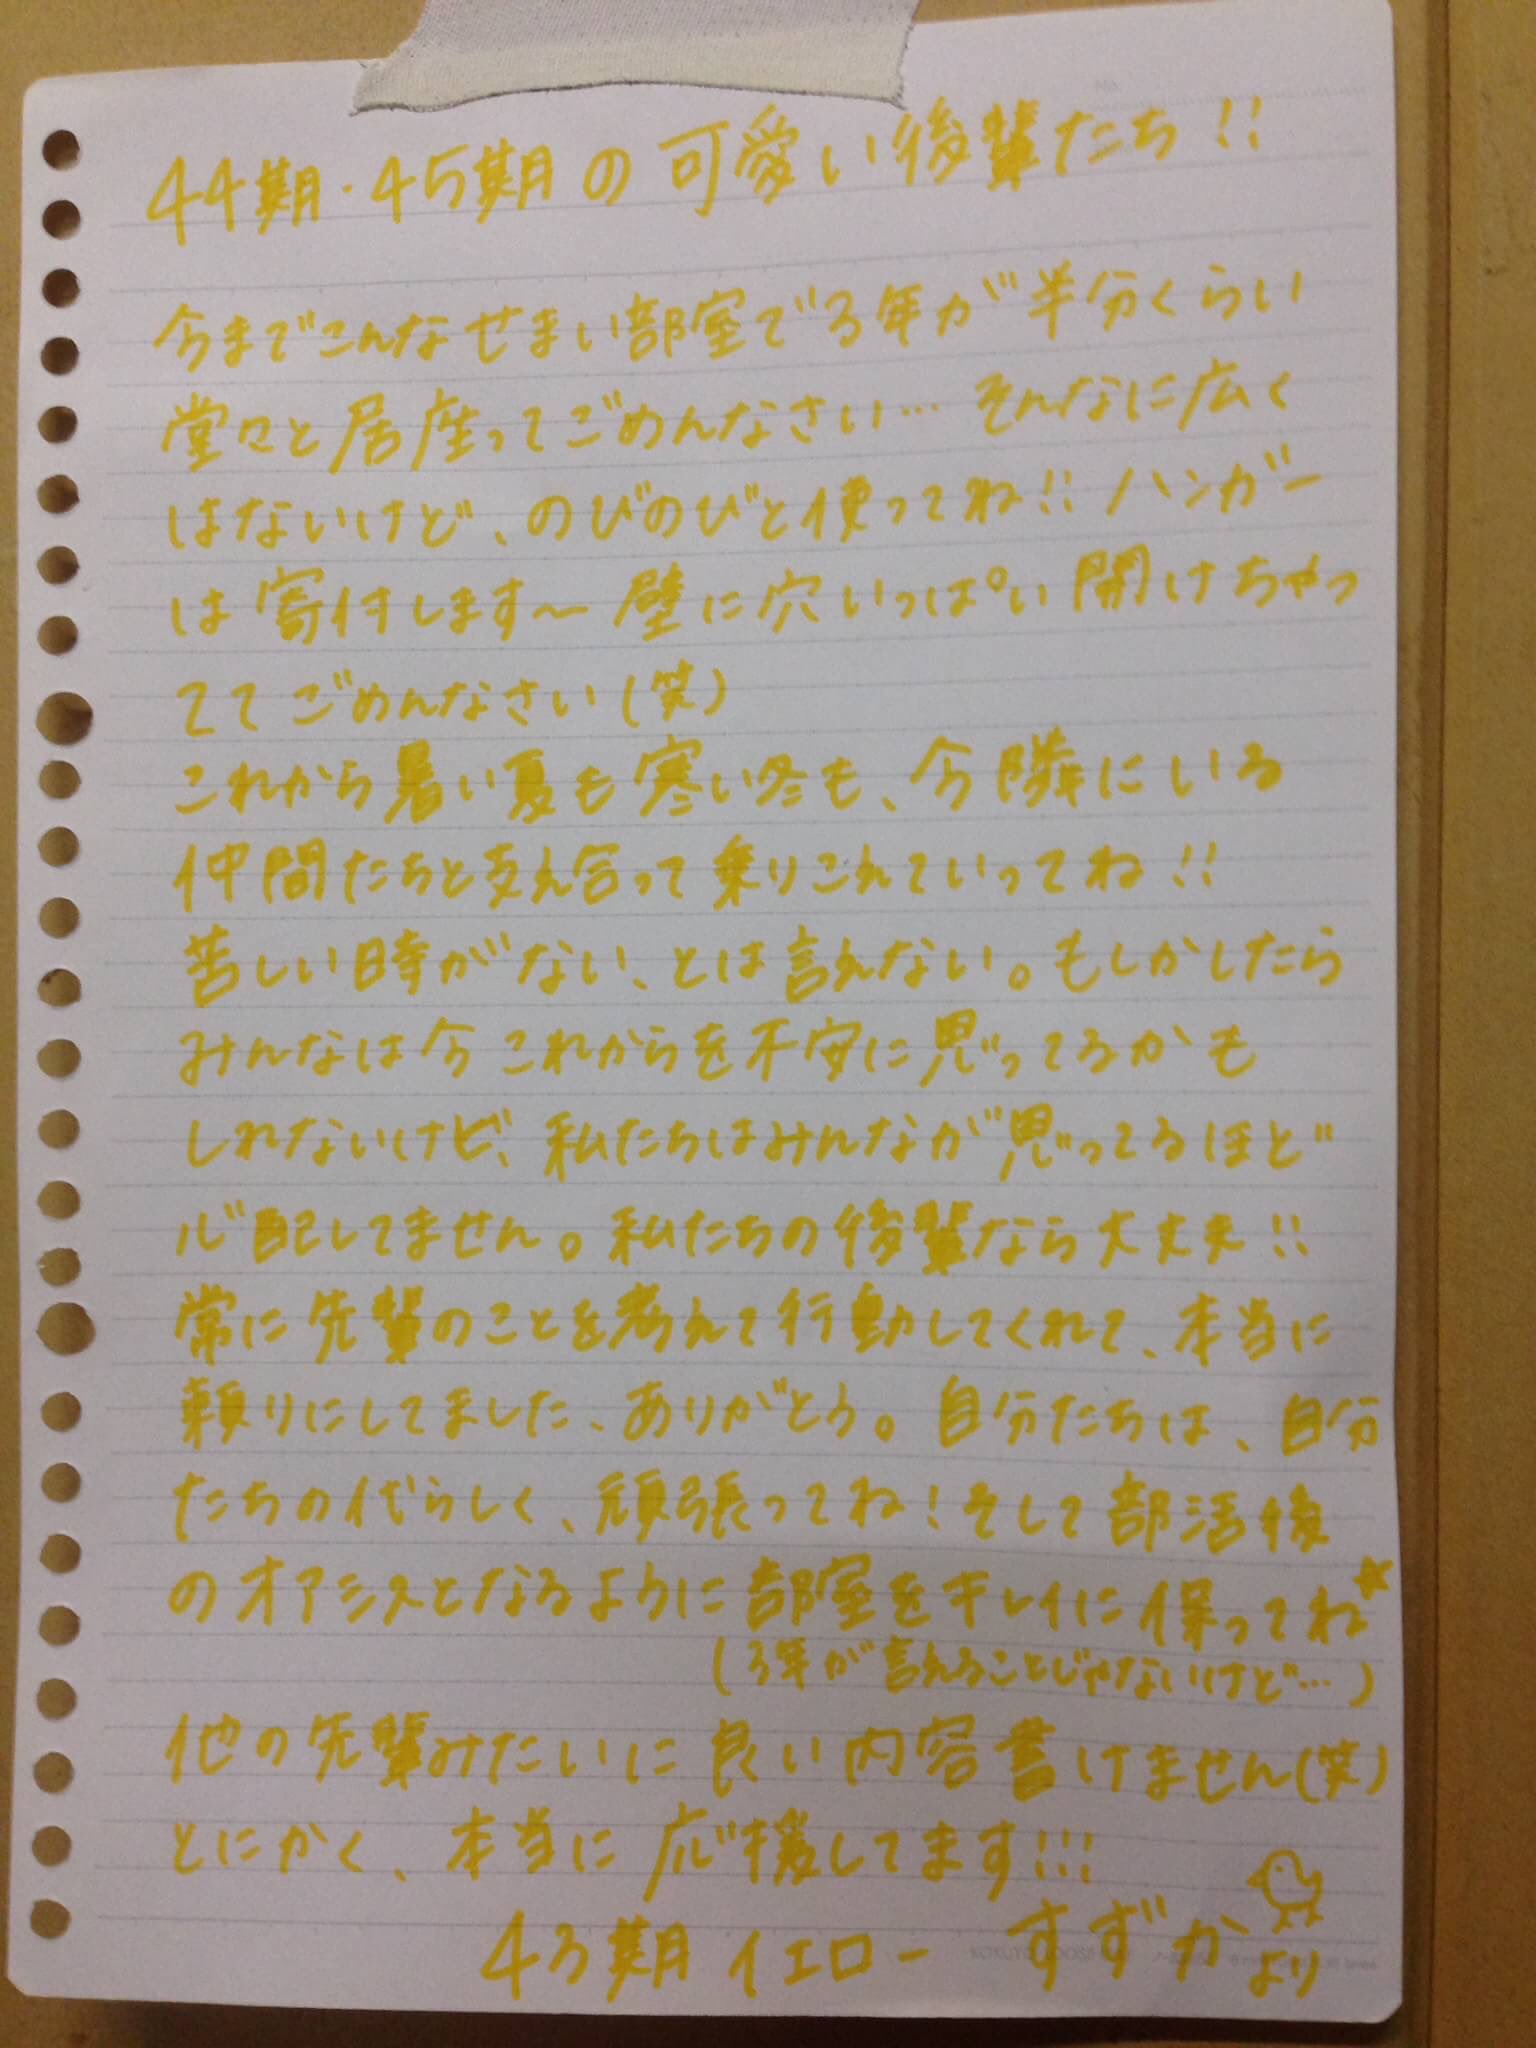 44期・45期の可愛い後輩たち!!
今までこんなせまい部室で3年が半分くらい
堂々と居座ってごめんなさい… そんなに広く
はないけど、のびのびと使ってね!! ハンガー
は寄付します〜 壁に穴いっぱい開けちゃっ
ててごめんなさい(笑)
これから暑い夏も寒い冬も、今隣にいる
仲間たちと支え合って乗りこえていってね!!
苦しい時がない、とは言えない。もしかしたら
みんなは今これからを不安に思ってるかも
しれないけど、私たちはみんなが思ってるほど
心配してません。私たちの後輩なら大丈夫!!
常に先輩のことを考えて行動してくれて、本当に
頼りにしてました、ありがとう。自分たちは、自分
たちの代らしく、頑張ってね!そして部活後
のオアシスとなるように部室をキレイに保ってね☆
(3年が言えることじゃないけど…)
他の先輩みたいに良い内容書けません(笑)
とにかく、本当に応援してます!!!
43期 イエロー すずかより